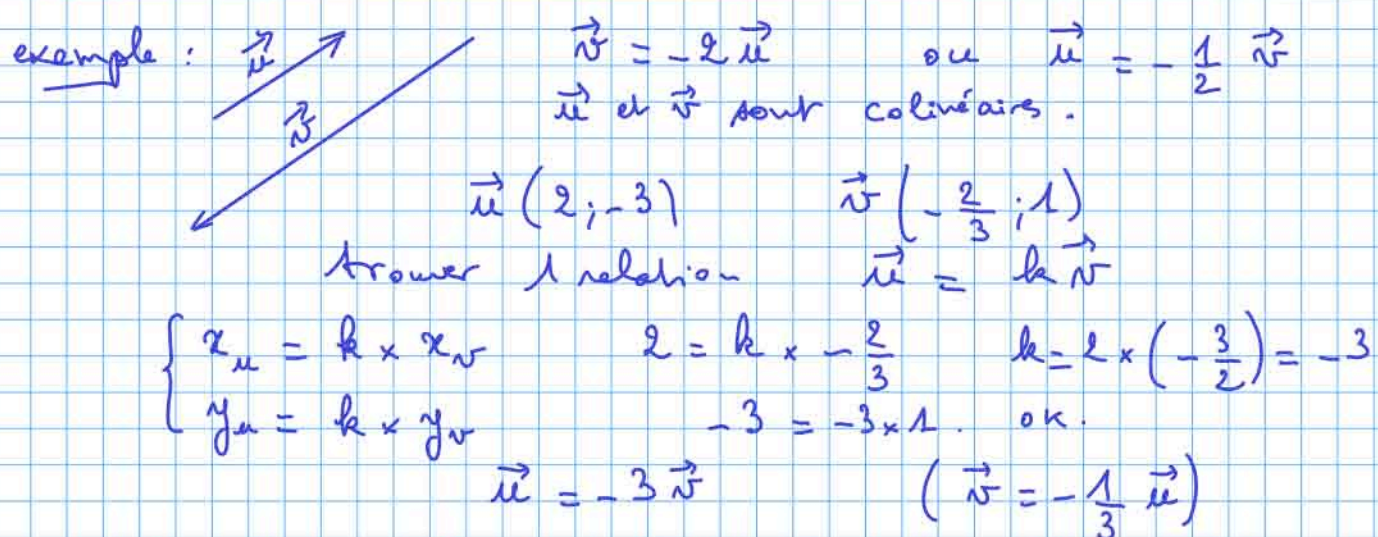 exemple : u⃗ v⃗ = -2u⃗ ou u⃗ = -1/2 v⃗
v⃗ u⃗ et v⃗ sont colinéaires.
u⃗ (2;-3) v⃗ (-2/3 ;1)
trouver 1 relation u⃗ = kv⃗
{ x_u = k × x_v 2 = k × -2/3 k = 2 × (-3/2) = -3
y_u = k × y_v -3 = -3×1. ok.
u⃗ = -3v⃗ (v⃗ = -1/3 u⃗)